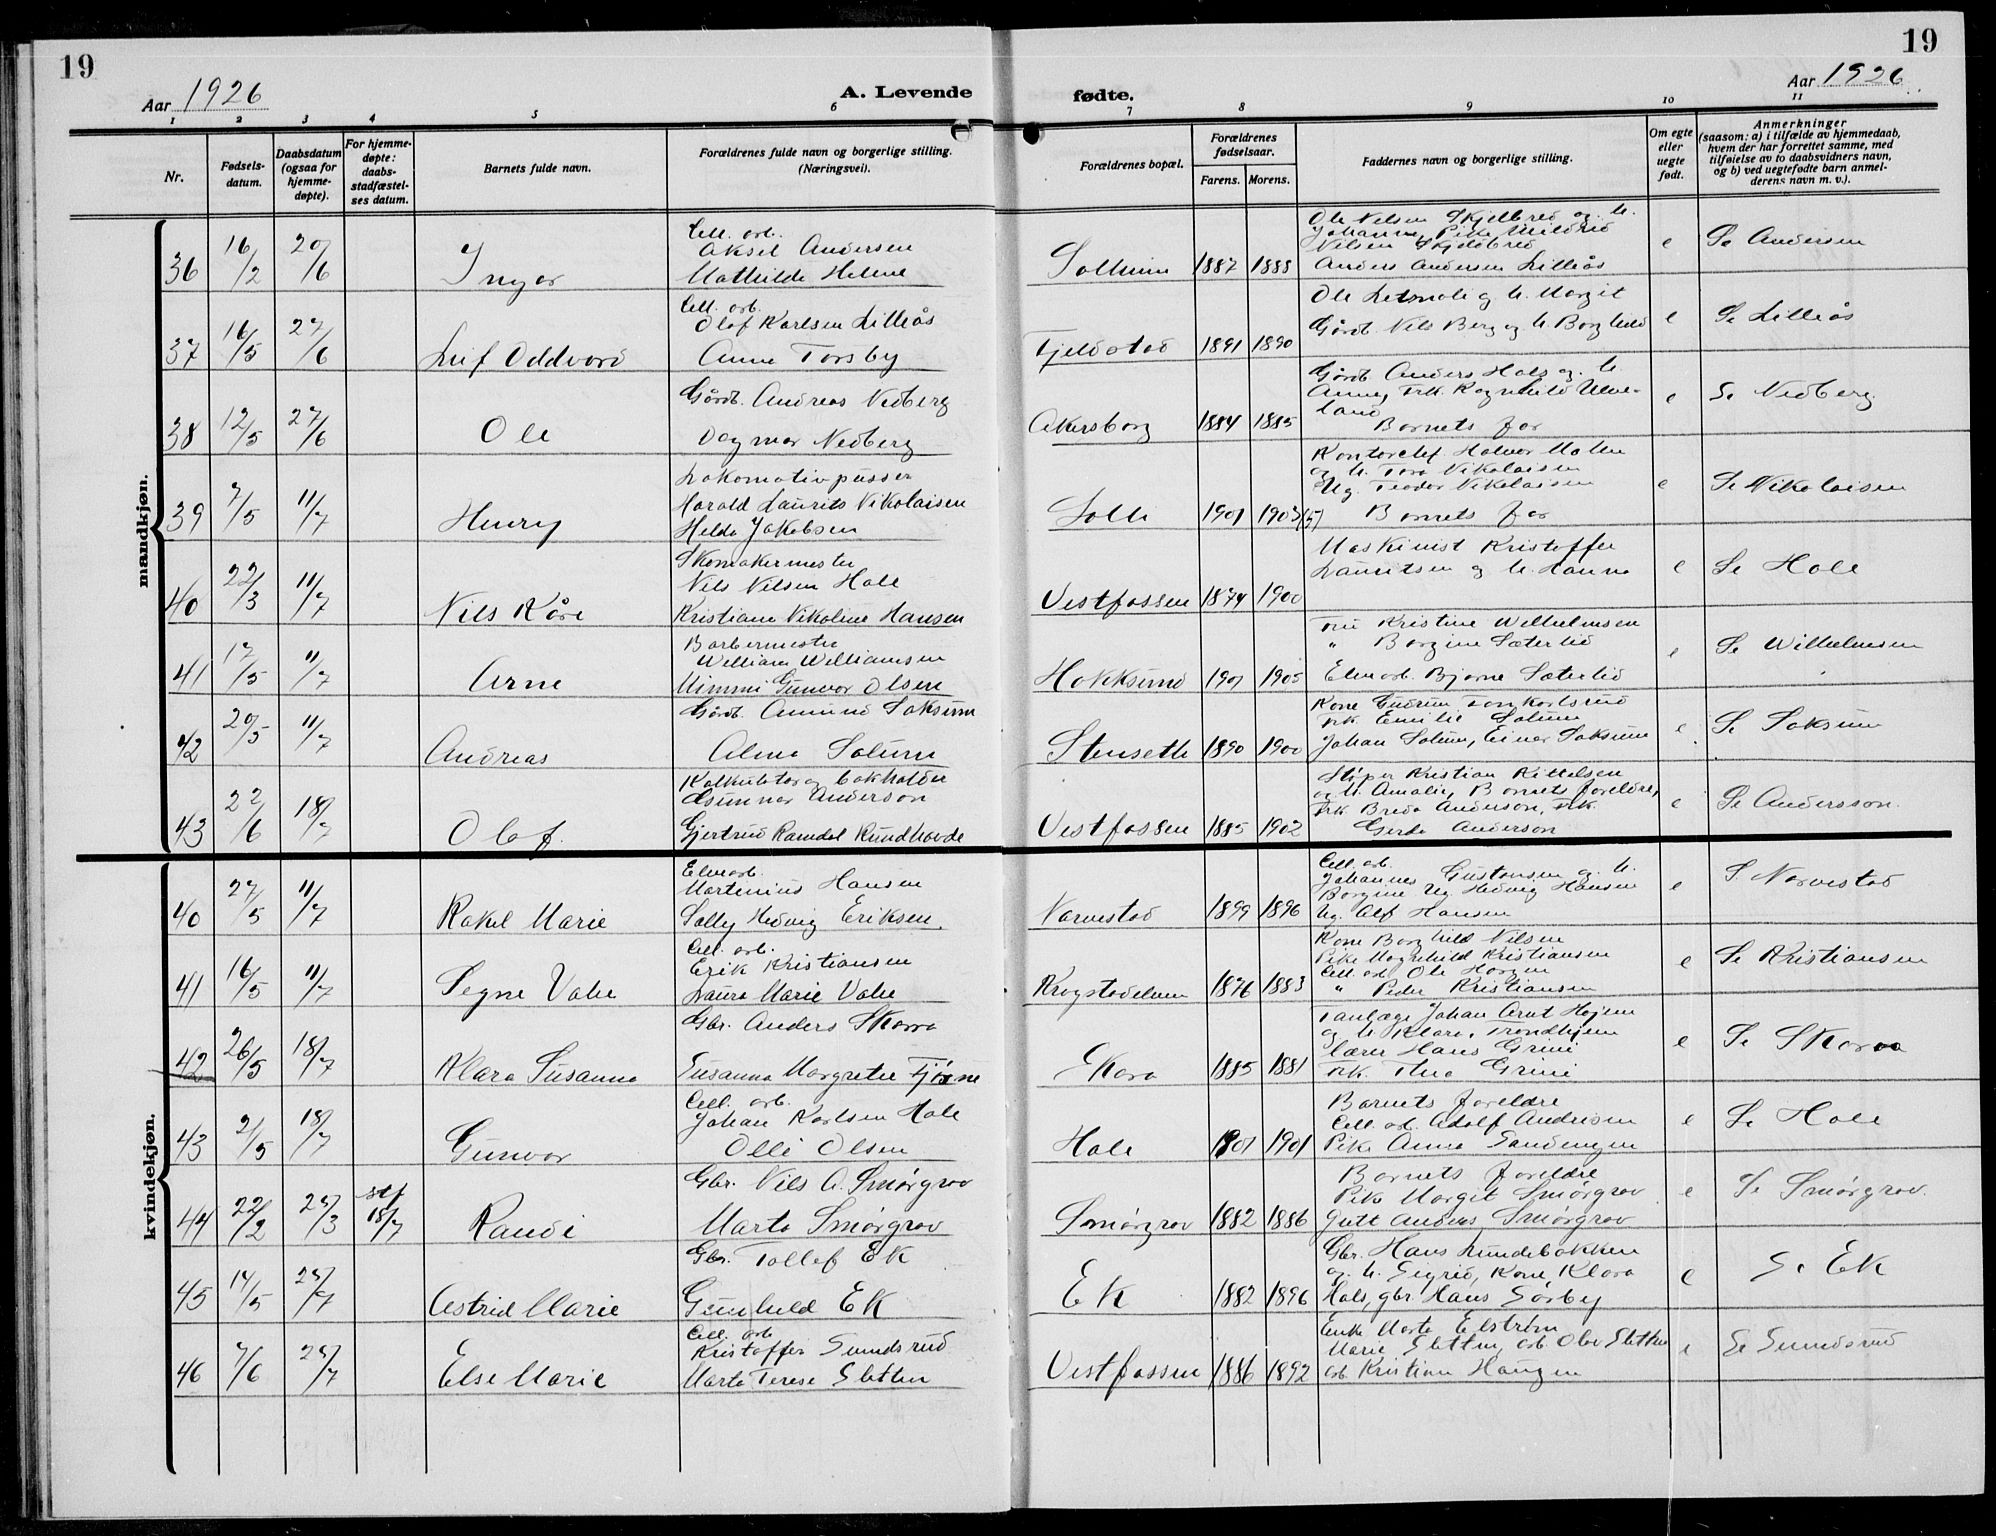 19
19
Aar 1926
A. Levende
fødte.
Aar 1926
1 2 3 4 5 6 7 8 9 10 11
Nr.
Fødsels-
datum.
Daabsdatum
(ogsaa for
hjemme-
døpte).
For hjemme-
døpte:
daabs-
stadfæstel-
ses datum.
Barnets fulde navn.
Forældrenes fulde navn og borgerlige stilling.
(Næringsvei).
Forældrenes bopæl.
Forældrenes
fødselsaar.
Farens. Morens.
Faddernes navn og borgerlige stilling.
Om egte
eller
uegte
født.
Anmerkninger
(saasom: a) i tilfælde av hjemmedaab,
hvem der har forrettet samme, med
tilføielse av to daabsvidners navn,
og b) ved uegtefødte barn anmel-
derens navn m. v.).
mandkjøn.
36 16/2 20/6 Ingar
Cell. arb.
Aksel Andersen
Mathilde Helene
Solheim 1887 1888
Ole Nilsen Skjelbred og h.
Johanne, Pike Mildrid
Nilsen Skjelbred
Anders Andersen Lilleås
e Se Andersen
37 16/5 27/6 Leif Oddvard
Cell. arb.
Olaf Karlsen Lilleås
Anna Torsby
Fjeldstad 1891 1890
Ole Letmoli og h. Margit
Gårdb. Nils Berg og h Borghild
e Se Lilleås
38 12/5 27/6 Ole
Gårdb. Andreas Nedberg
Dagmar Nedberg
Akersborg 1884 1885
Gårdb. Anders Hals og h.
Anne, Frk. Ragnhild Ulve-
land
Barnets far
e Se Nedberg
39 7/5 11/7 Henry
Lokomotivpusser
Harald Laurits Nikolaisen
Helda Jakobsen
Solli 1901 1903(5)
Kontorchef Halvor Moen
og h. Tora Nikolaisen
Ug. Teodor Nikolaisen
Barnets far
e Se Nikolaisen
40 22/3 11/7 Nils Kåre
Skomakermester
Nils Nilsen Hole
Kristiane Nikoline Hansen
Vestfossen 1874 1900
Maskinist Kristoffer
Lauritsen og h. Hanna
e Se Hole
41 17/5 11/7 Arne
Barbermester
William Williamsen
Mimmi Gunvor Olsen
Hokksund 1901 1905
Fru Kristine Wilhelmsen
" Borgine Sæterlid
Elevarb. Bjarne Sæterlid
e Se Wilhelmsen
42 20/5 11/7 Andreas
Gårdb. Amund Saksum
Alma Solum
Stensett 1890 1900
Kone Gudrun Tonkarlsrud
Frk. Emilie Solum
Johan Solum, Einar Saksum
e Se Saksum
43 22/6 18/7 Olaf
Kalkulator og bokholder
Gunnar Anderson
Gjertrud Ramdal Rundhovde
Vestfossen 1885 1902
Sliper Kristian Kittelsen
og h. Amalie, Barnets foreldre,
Frk. Breda Anderson, Frk.
Gerda Anderson
e Se Andersson.
kvindekjøn.
40 27/5 11/7 Rakel Marie
Elvearb.
Martinius Hansen
Solly Hedvig Eriksen.
Narvestad 1899 1896
Cell. arb.
Johannes Gustavsen og h.
Borgine Ug. Hedvig Hansen
Ug. Alf Hansen
e S. Narvestad
41 16/5 11/7 Segne Vahe
Cell. arb.
Erik Kristiansen
Laura Marie Vahe
Krogstadelven 1876 1883
Kone Borghild Nilsen
Pike Magnhild Kristiansen
Cell. arb Ole Horgen
" Peder Kristiansen
e Se Kristiansen
42 26/5 18/7 Klara Susanna
Gbr. Anders Skara
Susanna Margrete Fjøsne
Ekora 1885 1881
Tanlæge Johan Arnt Højem
og h Klara, Trondhjem
lærer Hans Grini
Frk. Thea Grini
e Se Skara
43 2/5 18/7 Gunvor
Cell. arb.
Johan Karlsen Hole
Olli Olsen
Hole 1901 1901
Barnets foreldre
Cell. arb. Adolf Andersen
Pike Anna Sandengen
e Se Hole
44 22/2 25/3 stf 18/7 Randi
Gbr. Nils A. Smørgrav
Marta Smørgrav
Smørgrav 1882 1886
Barnets foreldre
Pike Margit Smørgrav
Gutt Anders Smørgrav
e Se Smørgrav.
45 14/5 25/7 Astrid Marie
Gbr. Tollef Ek
Gunhild Ek
Ek 1882 1896
Gbr. Hans Lundebakken
og h. Sigrid, Kone Klara
Hals, gbr. Hans Sørby
e Se Ek
46 7/6 25/7 Else Marie
Cell. arb
Kristoffer Sundsrud
Marta Terese Sletten
Vestfossen 1886 1892
Enke Marta Elstrøm
Marie Sletten, arb Olav Sletten
arb Kristian Haugen
e Se Sundsrud